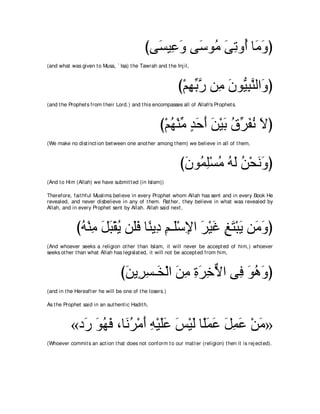 (وَمَا أُوتِىَ مُوسَى وَعِيسَى)
(and what was given to Musa, `Isa) the Tawrah and the Injil,
(وَالنَّبِيُّونَ مِن رَّبِّهِمْ)
(and the Prophets from their Lord.) and this encompasses all of Allah's Prophets.
(لاَ نُفَرِّقُ بَيْنَ أَحَدٍ مِّنْهُمْ)
(We make no distinction between one another among them) we believe in all of them,
(وَنَحْنُ لَهُ مُسْلِمُونَ)
(And to Him (Allah) we have submitted (in Islam))
Therefore, faithful Muslims believe in every Prophet whom Allah has sent and in every Book He
revealed, and never disbelieve in any of them. Rather, they believe in what was revealed by
Allah, and in every Prophet sent by Allah. Allah said next,
(وَمَن يَبْتَغِ غَيْرَ الإِسْلَـمِ دِينًا فَلَن يُقْبَلَ مِنْهُ)
(And whoever seeks a religion other than Islam, it will never be accepted of him,) whoever
seeks other than what Allah has legislated, it will not be accepted from him,
(وَهُوَ فِى الاٌّخِرَةِ مِنَ الْخَـسِرِينَ)
(and in the Hereafter he will be one of the losers.)
As the Prophet said in an authentic Hadith,
«مَنْ عَمِلَ عَمَلًا لَيْسَ عَلَيْهِ أَمْرُنَا، فَهُوَ رَد»
(Whoever commits an action that does not conform to our matter (religion) then it is rejected).